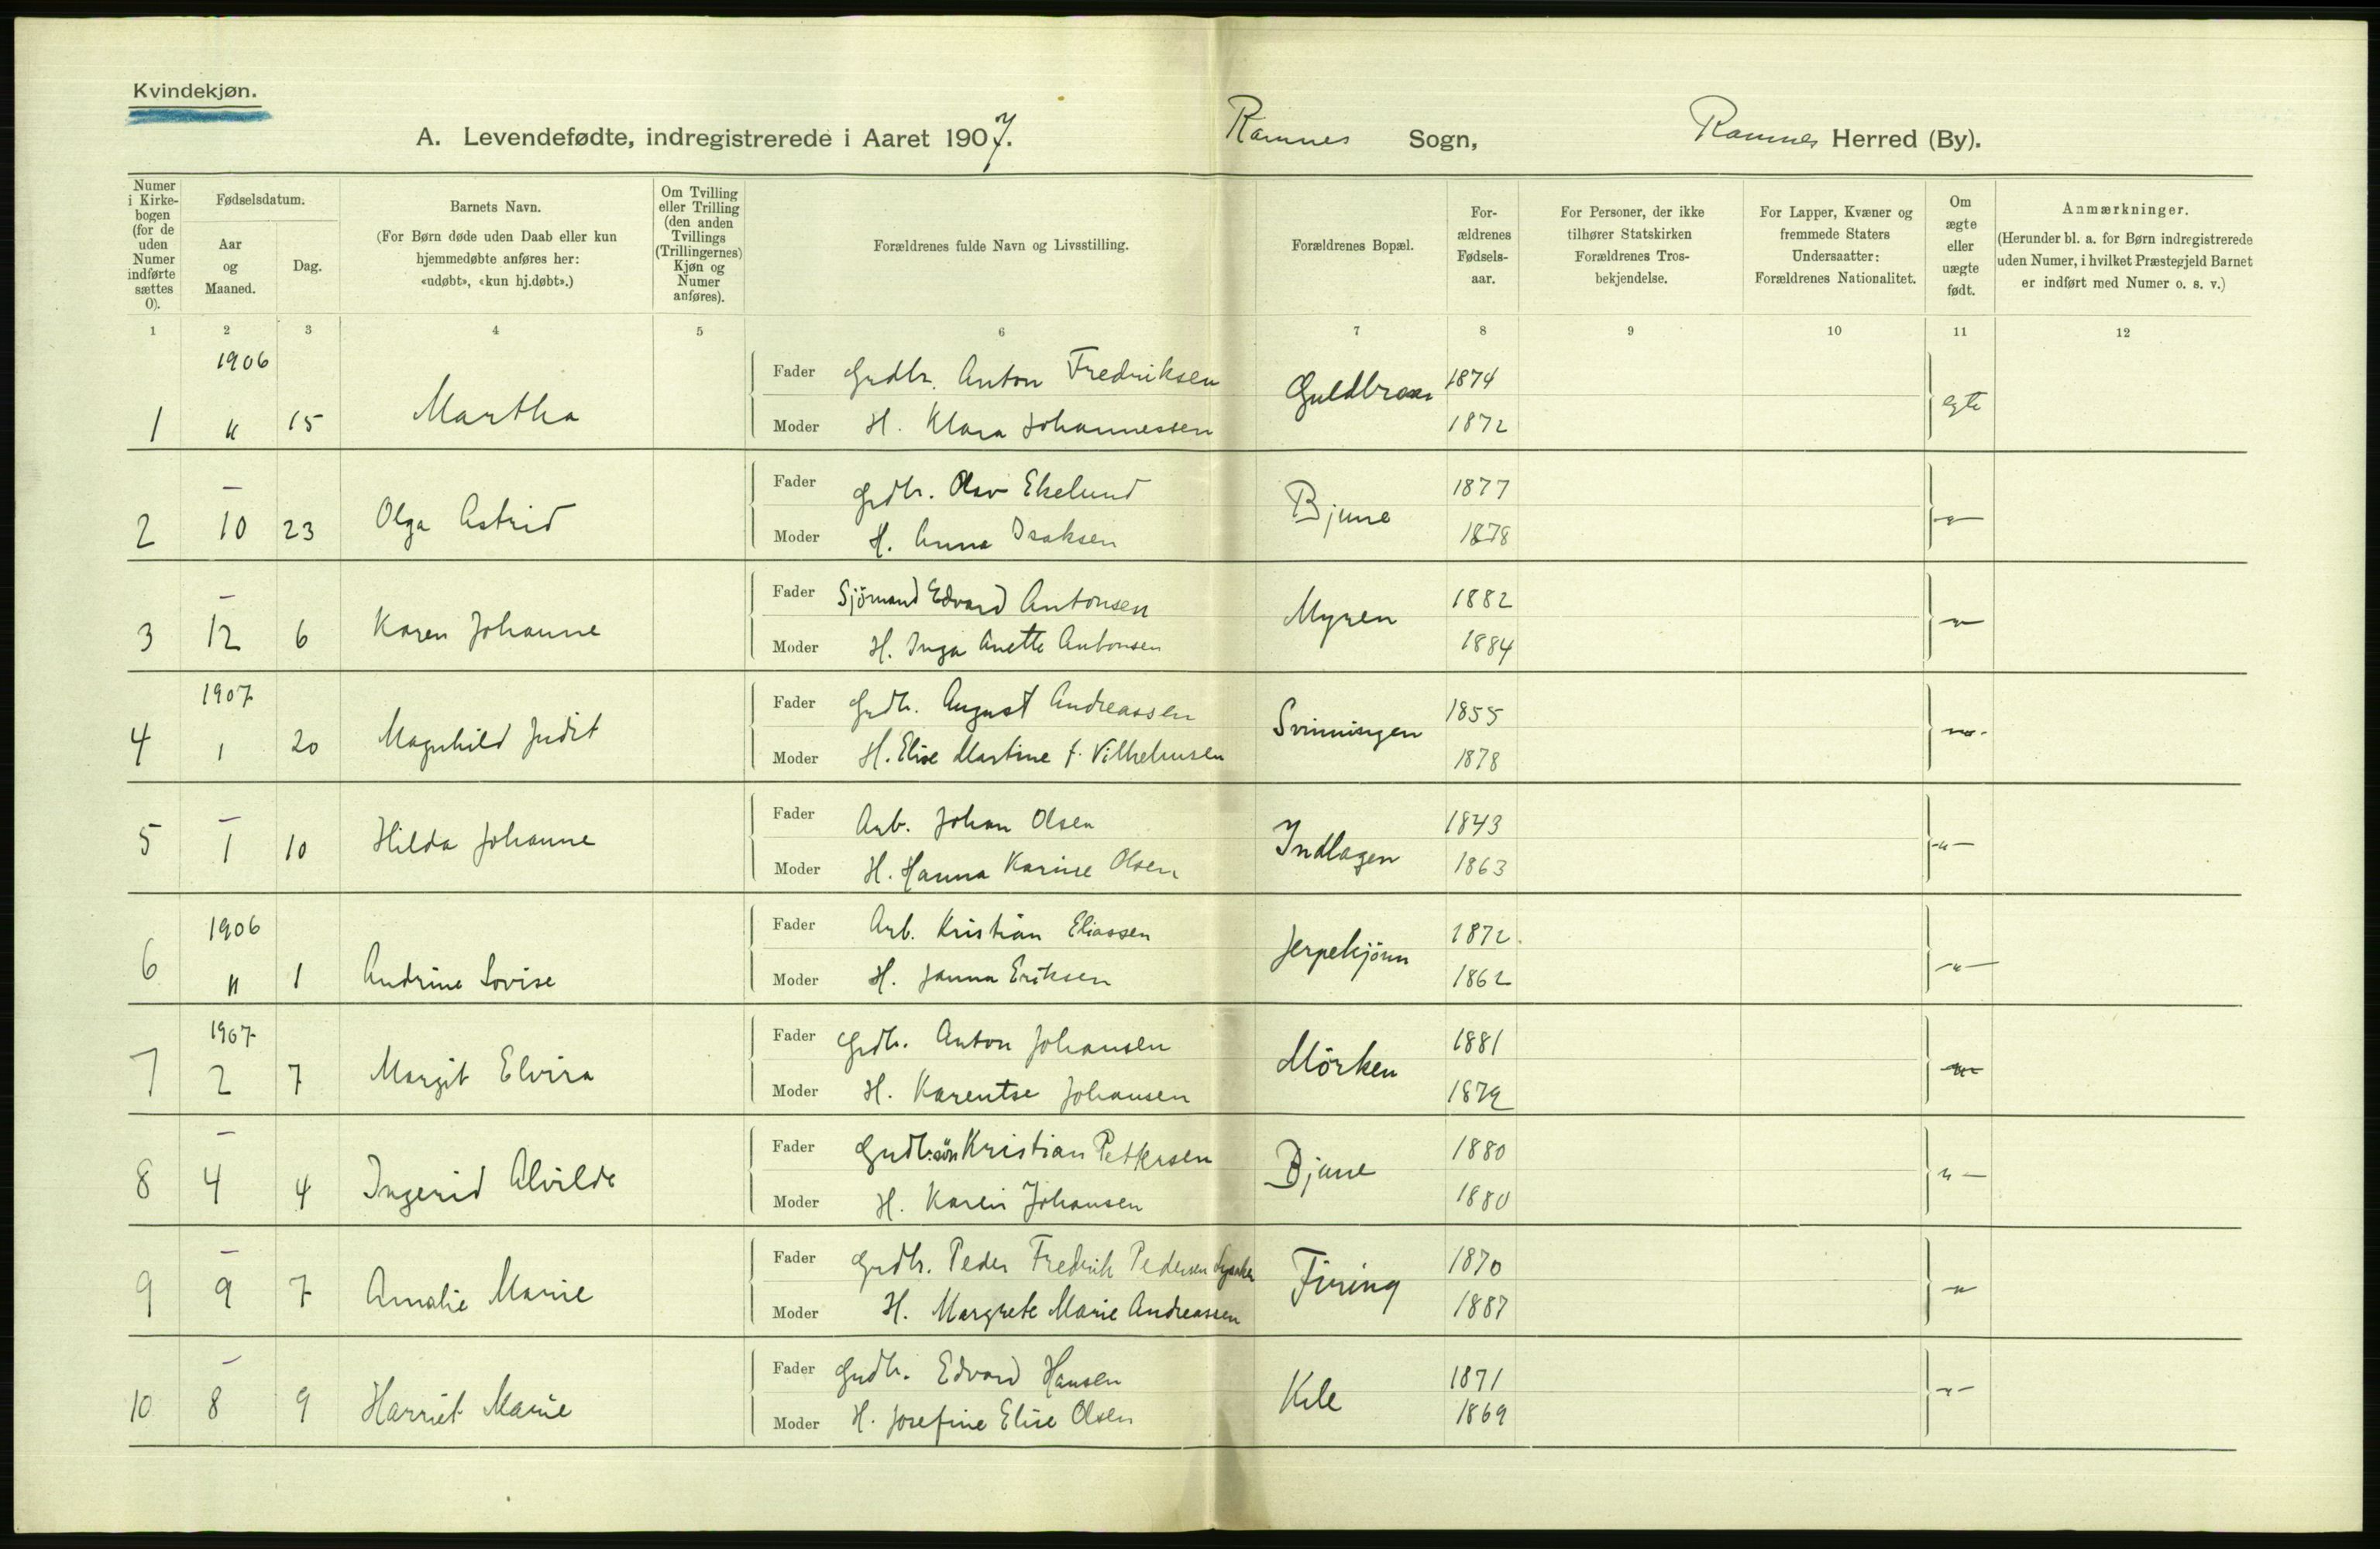 Kvindekjøn.
A. Levendefødte, indregistrerede i Aaret 1907. Ramnes Sogn, Ramnes Herred (By).
Numer i Kirke-bogen (for de uden Numer indførte sættes 0).
Fødselsdatum.
Aar og Maaned.
Dag.
Barnets Navn.
(For Børn døde uden Daab eller kun hjemmedøbte anføres her: «udøbt», «kun hj.døbt».)
Om Tvilling eller Trilling (den anden Tvillings (Trillingernes) Kjøn og Numer anføres).
Forældrenes fulde Navn og Livsstilling.
Forældrenes Bopæl.
For-ældrenes Fødsels-aar.
For Personer, der ikke tilhører Statskirken Forældrenes Tros-bekjendelse.
For Lapper, Kvæner og fremmede Staters Undersaatter: Forældrenes Nationalitet.
Om ægte eller uægte født.
Anmærkninger.
(Herunder bl. a. for Børn indregistrerede uden Numer, i hvilket Præstegjeld Barnet er indført med Numer o. s. v.)
1 2 3 4 5 6 7 8 9 10 11 12
1906
Fader Grdbr. Anton Fredriksen 1874
1 11 15 Martha Guldbrans egte
Moder H. Klara Johannessen 1872
Fader Grdbr. Olav Ekelund 1877
2 – 10 23 Olga Astrid Bjune –"–
Moder H. Anna Isaksen 1878
Fader Sjömand Edvard Antonsen 1882
3 – 12 6 Karen Johanne Myren –"–
Moder H. Inga Anette Antonsen 1884
1907
Fader Grdbr. August Andreassen 1855
4 1 20 Magnhild Judit Svinningen –"–
Moder H. Elise Martine f. Vilhelmsen 1878
Fader Arb. Johan Olsen 1843
5 – 1 10 Hilda Johanne Indlagen –"–
Moder H. Hanna Karine Olsen 1863
1906
Fader Arb. Kristian Eliassen 1872
6 11 1 Andrine Lovise Jerpekjönn –"–
Moder H. Janna Eriksen 1862
1907
Fader Grdbr. Anton Johansen 1881
7 2 7 Margit Elvira Mörken –"–
Moder H. Karentse Johansen 1879
Fader Grdbr.sön Kristian Pettersen 1880
8 – 4 4 Ingerid Alvilde Bjune –"–
Moder H. Karen Johansen 1880
Fader Grdbr. Peder Fredrik Pedersen 1870
9 – 9 7 Amalie Marie Firing –"–
Moder H. Margrete Marie Andreassen 1887
Fader Grdbr. Edvard Hansen 1871
10 – 8 9 Harriet Marie Kile –"–
Moder H. Josefine Elise Olsen 1869